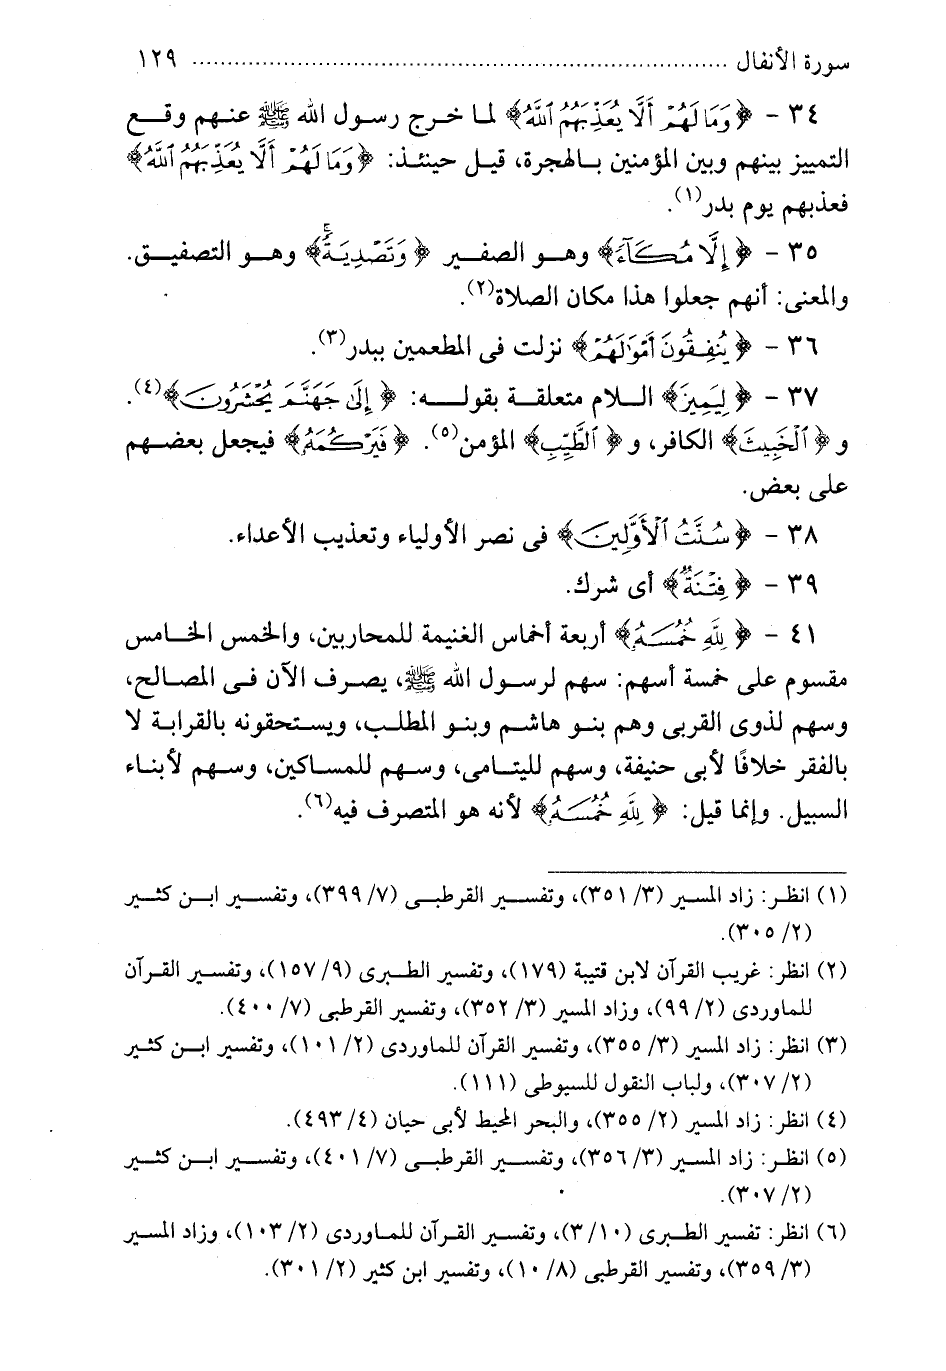 سورة الأنفال ........................................................................ ١٢٩
٣٤ - ﴿وَمَا لَهُمْ أَلَّا يُعَذِّبَهُمُ ٱللَّهُ﴾ لما خرج رسول الله ﷺ عنهم وقع
التمييز بينهم وبين المؤمنين بالهجرة، قيل حينئذ: ﴿وَمَا لَهُمْ أَلَّا يُعَذِّبَهُمُ ٱللَّهُ﴾
فعذبهم يوم بدر(١).
٣٥ - ﴿إِلَّا مُكَآءً﴾ وهو الصفير ﴿وَتَصْدِيَةً﴾ وهو التصفيق.
والمعنى: أنهم جعلوا هذا مكان الصلاة(٢).
٣٦ - ﴿يُنفِقُونَ أَمْوَٰلَهُمْ﴾ نزلت فى المطعمين ببدر(٣).
٣٧ - ﴿لِيَمِيزَ﴾ اللام متعلقة بقوله: ﴿إِلَىٰ جَهَنَّمَ يُحْشَرُونَ﴾(٤).
و﴿ٱلْخَبِيثَ﴾ الكافر، و﴿ٱلطَّيِّبِ﴾ المؤمن(٥). ﴿فَيَرْكُمَهُ﴾ فيجعل بعضهم
على بعض.
٣٨ - ﴿سُنَّتُ ٱلْأَوَّلِينَ﴾ فى نصر الأولياء وتعذيب الأعداء.
٣٩ - ﴿فِتْنَةٌ﴾ أى شرك.
٤١ - ﴿لِلَّهِ خُمُسَهُ﴾ أربعة أخماس الغنيمة للمحاربين، والخمس الخامس
مقسوم على خمسة أسهم: سهم لرسول الله ﷺ، يصرف الآن فى المصالح،
وسهم لذوى القربى وهم بنو هاشم وبنو المطلب، ويستحقونه بالقرابة لا
بالفقر خلافًا لأبى حنيفة، وسهم لليتامى، وسهم للمساكين، وسهم لأبناء
السبيل. وإنما قيل: ﴿لِلَّهِ خُمُسَهُ﴾ لأنه هو المتصرف فيه(٦).
(١) انظر: زاد المسير (٣/ ٣٥١)، وتفسير القرطبى (٧/ ٣٩٩)، وتفسير ابن كثير
(٢/ ٣٠٥).
(٢) انظر: غريب القرآن لابن قتيبة (١٧٩)، وتفسير الطبرى (٩/ ١٥٧)، وتفسير القرآن
للماوردى (٢/ ٩٩)، وزاد المسير (٣/ ٣٥٢)، وتفسير القرطبى (٧/ ٤٠٠).
(٣) انظر: زاد المسير (٣/ ٣٥٥)، وتفسير القرآن للماوردى (٢/ ١٠١)، وتفسير ابن كثير
(٢/ ٣٠٧)، ولباب النقول للسيوطى (١١١).
(٤) انظر: زاد المسير (٢/ ٣٥٥)، والبحر المحيط لأبى حيان (٤/ ٤٩٣).
(٥) انظر: زاد المسير (٣/ ٣٥٦)، وتفسير القرطبى (٧/ ٤٠١)، وتفسير ابن كثير
(٢/ ٣٠٧).
(٦) انظر: تفسير الطبرى (١٠/ ٣)، وتفسير القرآن للماوردى (٢/ ١٠٣)، وزاد المسير
(٣/ ٣٥٩)، وتفسير القرطبى (٨/ ١٠)، وتفسير ابن كثير (٢/ ٣٠١).